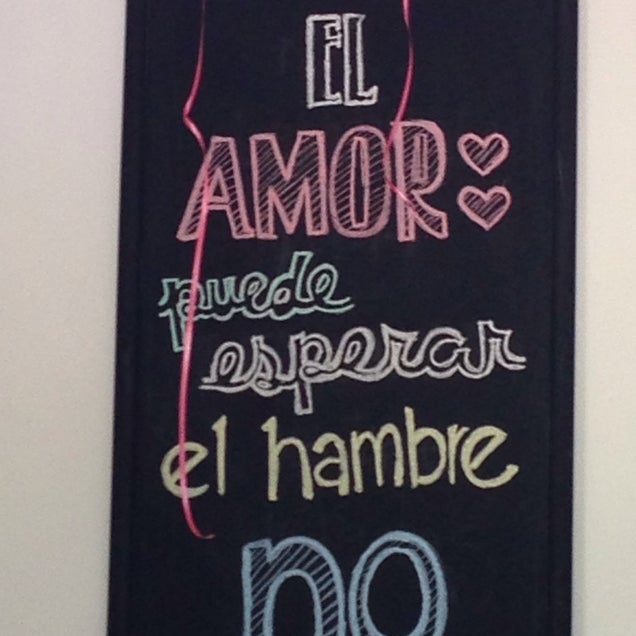 EL
AMOR
puede
esperar
el hambre
no